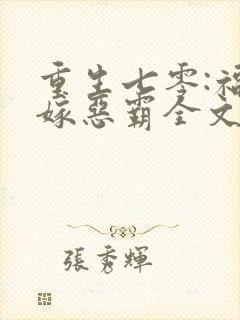 重生七零:福
嫁惡霸全文
張秀輝